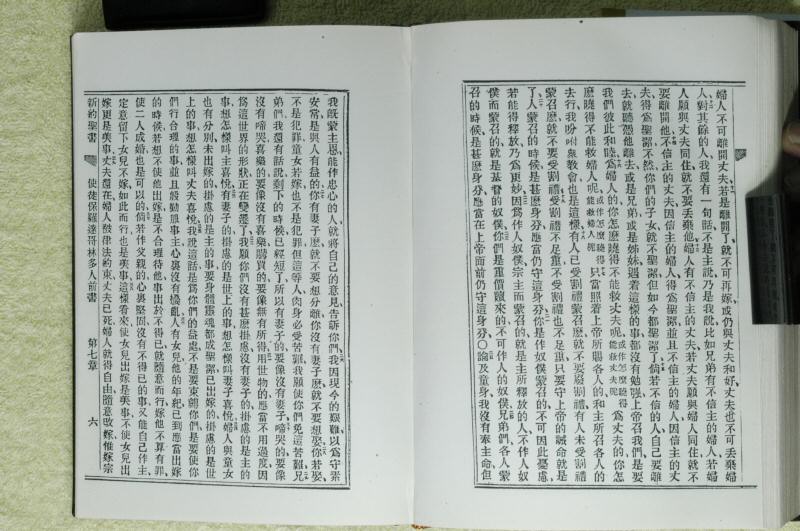 婦人不可離開丈夫、若是離開了、就不可再嫁、或仍與丈夫和好、丈夫也不可丟棄婦
人、對其餘的人、我還有一句話、不是主說、乃是我說、比如兄弟有不信主的婦人、若婦
人願與丈夫同住、就不要丟棄他、婦人有不信主的丈夫、若丈夫願與婦人同住、就不
要離開他、不信主的丈夫、因信主的婦人、得為聖潔、並且不信主的婦人、因信主的丈
夫、得為聖潔、不然、你們的子女、就不聖潔、但如今都聖潔了、倘若不信的人、自己要離
去、就聽憑他離去、或是兄弟、或是姊妹、遇着這樣的事、都沒有勉強、上帝召我們、是要
我們彼此和睦、為婦人的、你怎麽曉得不能救丈夫呢、或作怎麽曉得能救丈夫呢為丈夫的、你怎
麽曉得不能救婦人呢、或作怎麽曉得能救婦人呢只當照着上帝所賜各人的、和主所召各人的
去行、我吩咐衆教會也是這樣、有人已受割禮蒙召麽、就不要廢割禮、有人未受割禮
蒙召麽、就不要受割禮、受割禮不足重、不受割禮也不足重、只要守上帝的誡命就是
了、人蒙召的時候、是甚麽身分、應當仍守這身分、你是作奴僕蒙召的、不可因此憂慮、
若能得釋放、乃為更妙、因為作人奴僕、宗主而蒙召的、就是主所釋放的人、不作人奴
僕而蒙召的、就是基督的奴僕、你們是重價買來的、不可作人的奴僕、兄弟們、各人蒙
召的時候、是甚麽身分、應當在上帝面前仍守這身分、〇論及童身、我沒有奉主命、但
我既蒙主恩、能作忠心的人、就將自己的意見、告訴你們、我因現今的艱難、以為守素
安常、是與人有益的、你有妻子麽、就不要想分離、你沒有妻子麽、就不要想娶、你若娶
不是犯罪、童女若嫁、也不是犯罪、但這等人、肉身必受苦難、我願使你們免這苦難、兄
弟們、我還有話說、剩下的時候、已經短了、所以有妻子的、要像沒有妻子、啼哭的、要像
沒有啼哭、喜樂的、要像沒有喜樂、購買的、要像無有所得、用世物的、應當不用過度、因
為這世界的形狀、正在變遷了、我願你們沒有甚麽掛慮、沒有妻子的、掛慮的是主的
事、想怎樣叫主喜悅、有妻子的、掛慮的是世上的事、想怎樣叫妻子喜悅、婦人與童女
也有分別、未出嫁的、掛慮的是主的事、要身體靈魂都成聖潔、已出嫁的、掛慮的是世
上的事、想怎樣叫丈夫喜悅、我說這話、是為你們的益處、不是要束縛你們、是要使你
們行合理的事、並且殷勤服事主、心裏沒有擾亂、人有女兒、他的年紀已到應當出嫁
的時候、若想不使他出嫁、是不合理、待他事出於不得已、就隨意而行、嫁他不算有罪、
使二人成婚也是可以的、倘若作父親的心裏堅固、沒有不得已的事、又能自己作主、
定意留下女兒不嫁、如此而行、也是美事、這樣看來、使女兒出嫁、是美事、不使女兒出
嫁更是美事、丈夫還在、婦人被律法約束、丈夫已死、婦人就得自由、隨意改嫁、惟嫁宗
新約聖書
使徒保羅達哥林多人前書
第七章
六